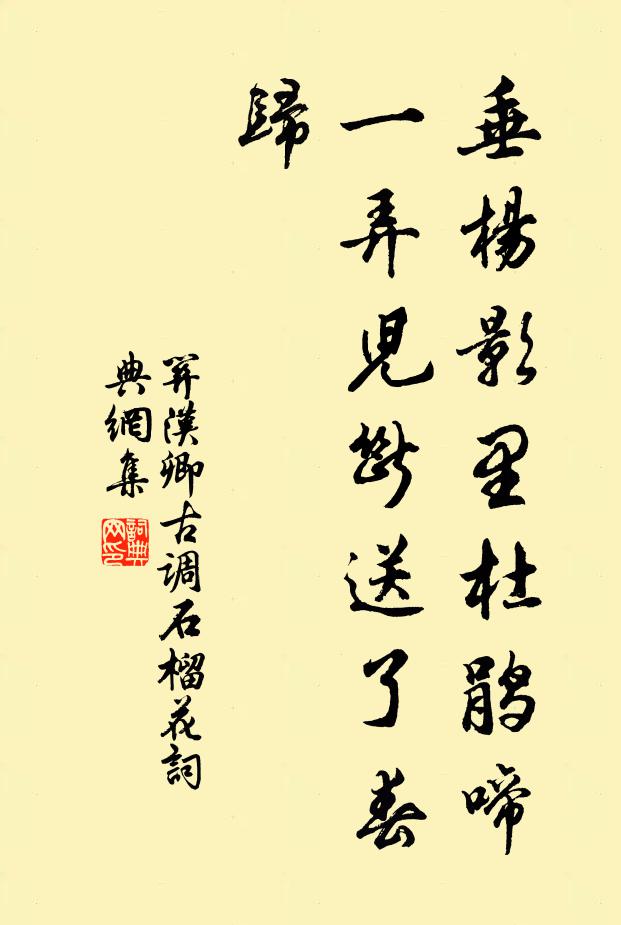 垂楊影里杜鵑啼
一弄兒斷送了春
歸
關漢卿古调石榴花詞
典網集
詞典
网印